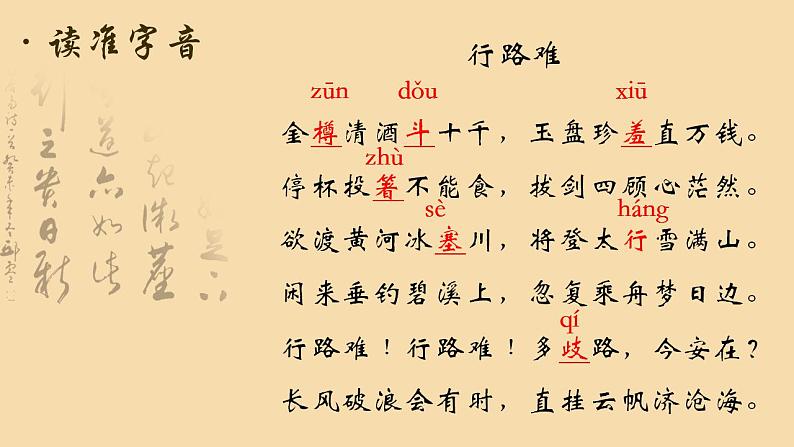 ·读准字音
行路难
zūn dǒu xiū
金樽清酒斗十千，玉盘珍羞直万钱。
zhù
停杯投箸不能食，拔剑四顾心茫然。
sè háng
欲渡黄河冰塞川，将登太行雪满山。
闲来垂钓碧溪上，忽复乘舟梦日边。
qí
行路难！行路难！多歧路，今安在？
长风破浪会有时，直挂云帆济沧海。